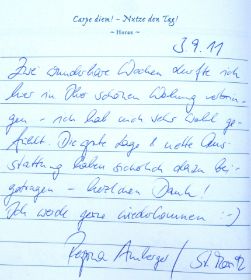 Carpe diem! - Nutze den Tag!
~ Horaz ~
3.9.11
Zwei wunderbare Wochen durfte ich
hier in Ihrer schönen Wohnung verbrin-
gen - ich hab mich sehr wohl ge-
fühlt. Die gute Lage & nette Aus-
stattung haben sicherlich dazu bei-
getragen - herzlichen Dank!
Ich werde gerne wiederkommen :-)
Regina Amberger / St. Moritz